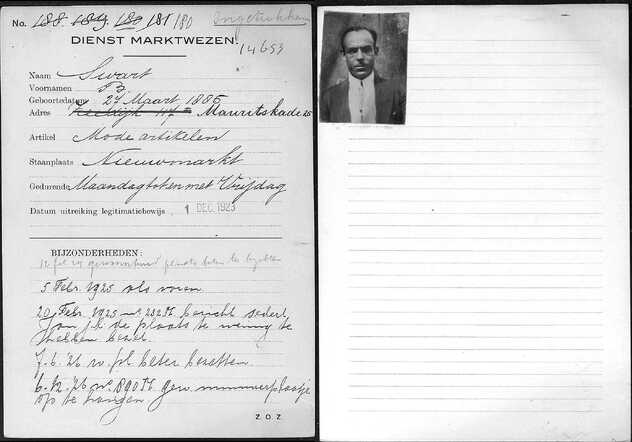 No. 188. 189. 180 181 180 Ingetrokken
DIENST MARKTWEZEN.
14653
Naam Swart
Voornamen B.
Geboortedatum 27 Maart 1885
Adres Zeedijk 117 Mauritskade 25
Artikel Mode artikelen
Staanplaats Nieuwmarkt
Gedurende Maandag tot en met Vrijdag
Datum uitreiking legitimatiebewijs 1 DEC. 1923
BIJZONDERHEDEN:
12 Feb 24 gewaarschuwd plaats beter te bezetten
5 Febr. 1925 als voren
20 Febr. 1925 no 232 M. bericht sedert
Jan j.l. de plaats te weinig te
hebben bezet.
7.6.'26 w. pl. beter bezetten.
6.12.'26 no. 890 M. gew. nummerplaatje
op te hangen.
Z.O.Z.